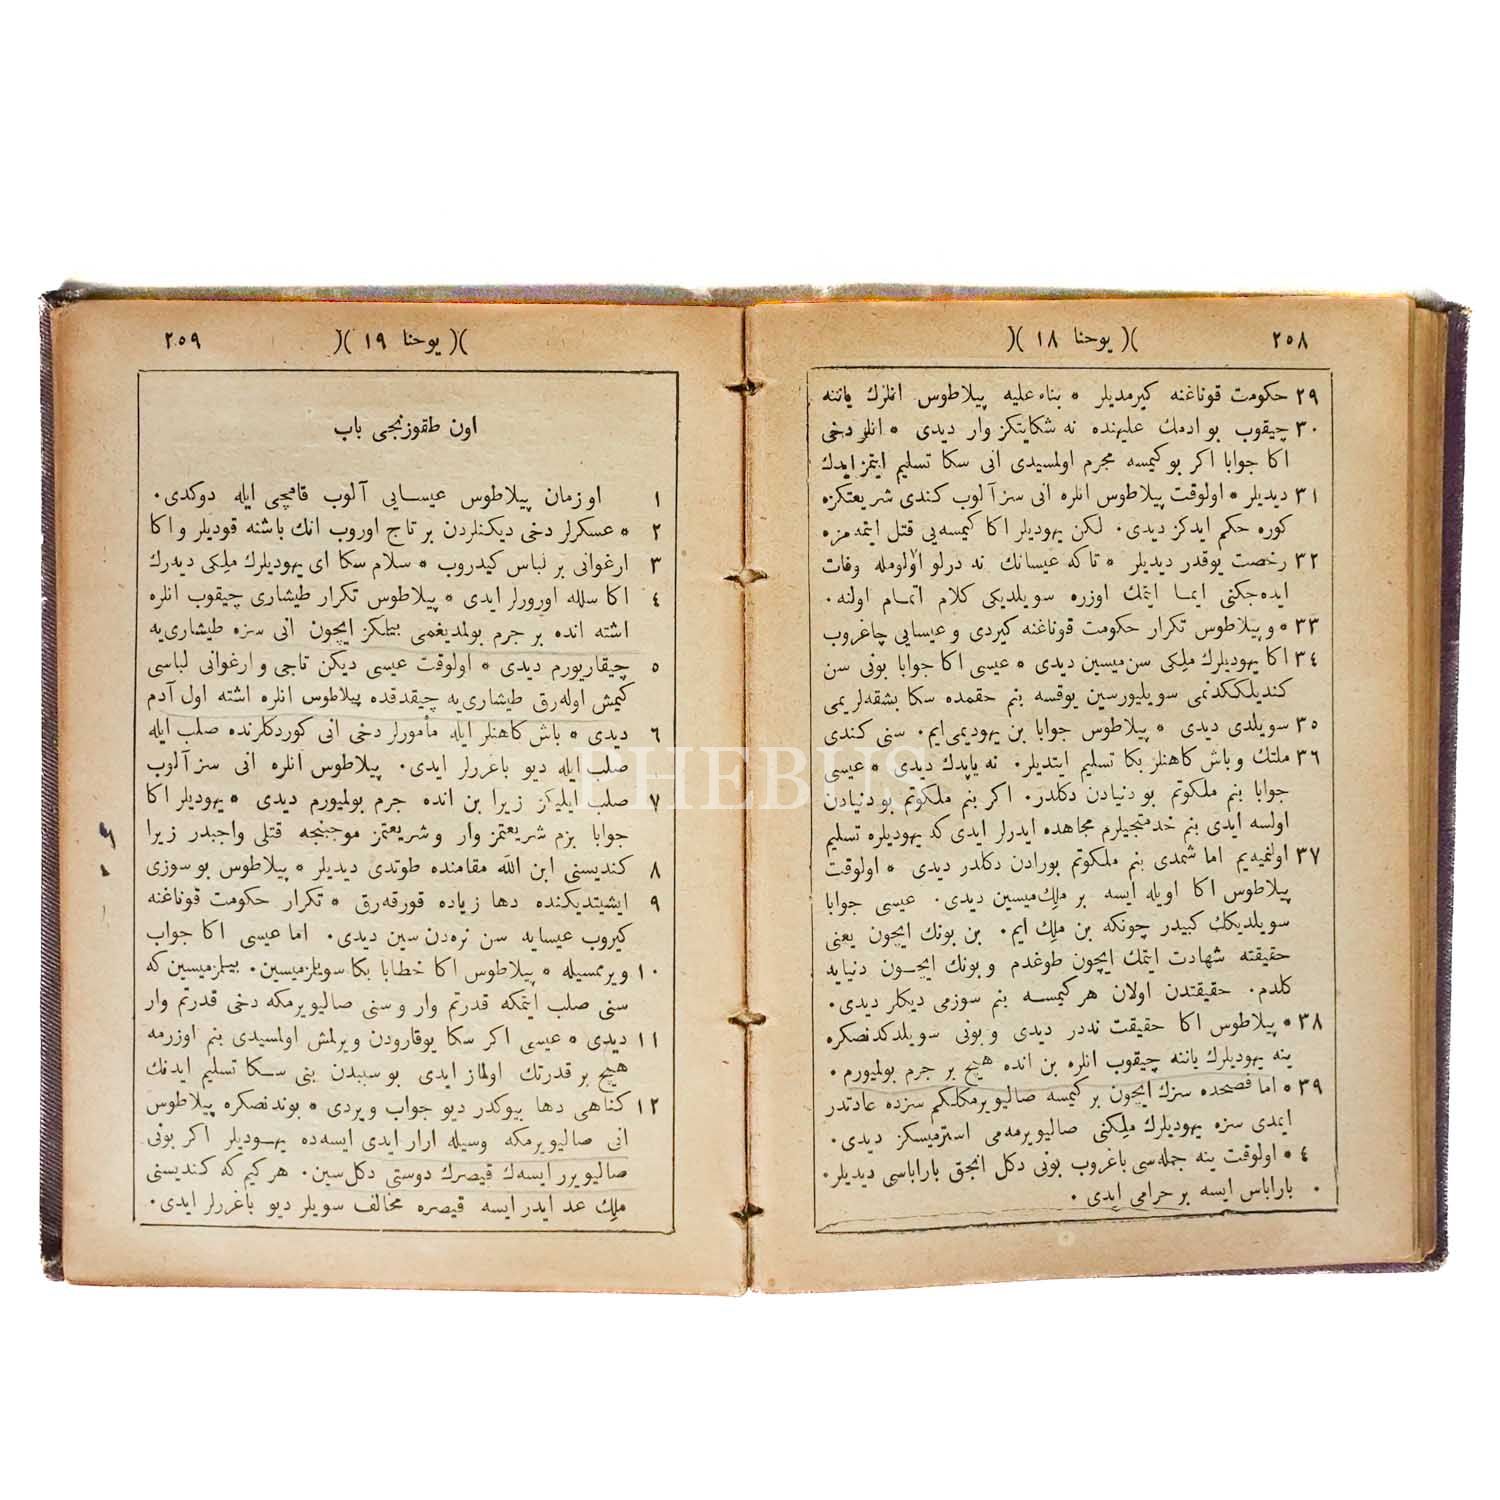 ٢٥٨ )( يوحنا ١٨ )(
٢٩ حكومت قوناغنه كيرمديلر * بناء عليه پيلاطوس انلرك ياننه
٣٠ چيقوب بو ادمك عليهنده نه شكايتكز وار ديدى * انلر دخى
اكا جوابا اكر بو كيمسه مجرم اولمسيدى انى سكا تسليم ايتمز ايدك
٣١ ديديلر * اولوقت پيلاطوس انلره انى سز آلوب كندى شريعتكزه
كوره حكم ايدكز ديدى. لكن يهوديلر اكا كيمسه‌يى قتل ايتمه مزه
٣٢ رخصت يوقدر ديديلر * تاكه عيسانك نه درلو اولومله وفات
ايده‌جكنى ايما ايتمك اوزره سويلديكى كلام اتمام اولنه.
٣٣ * و پيلاطوس تكرار حكومت قوناغنه كيردى و عيسايى چاغروب
٣٤ اكا يهوديلرك ملكى سن‌ميسين ديدى * عيسى اكا جوابا بونى سن
كنديلككدنمى سويليورسين يوقسه بنم حقمده سكا بشقه‌لريمى
٣٥ سويلدى ديدى * پيلاطوس جوابا بن يهوديمى‌ايم. سنى كندى
٣٦ ملتك و باش كاهنلر بكا تسليم ايتديلر. نه ياپدك ديدى * عيسى
جوابا بنم ملكوتم بو دنيادن دكلدر. اكر بنم ملكوتم بو دنيادن
اولسه ايدى بنم خدمتجيلرم مجاهده ايدرلر ايدى كه يهوديلره تسليم
٣٧ اولنميه‌يم اما شمدى بنم ملكوتم بورادن دكلدر ديدى * اولوقت
پيلاطوس اكا اويله ايسه بر ملك‌ميسين ديدى. عيسى جوابا
سويلديكك كبيدر چونكه بن ملك ايم. بن بونك ايچون يعنى
حقيقته شهادت ايتمك ايچون طوغدم و بونك ايچون دنيايه
كلدم. حقيقتدن اولان هر كيمسه بنم سوزمى ديكلر ديدى.
٣٨ * پيلاطوس اكا حقيقت نه‌در ديدى و بونى سويلدكدنصكره
ينه يهوديلرك ياننه چيقوب انلره بن انده هيچ بر جرم بولميورم.
٣٩ * اما فصحده سزك ايچون بر كيمسه صاليويرمكلكم سزده عادتدر
ايمدى سزه يهوديلرك ملكنى صاليويرمه‌مى استرميسكز ديدى.
٤٠ * اولوقت ينه جمله‌سى باغروب بونى دكل انجق باراباسى ديديلر.
باراباس ايسه بر حرامى ايدى.
٢٥٩ )( يوحنا ١٩ )(
اون طقوزنجى باب
١ او زمان پيلاطوس عيسايى آلوب قامچى ايله دوكدى.
٢ * عسكرلر دخى ديكنلردن بر تاج اوروب انك باشنه قوديلر و اكا
٣ ارغوانى بر لباس كيدروب * سلام سكا اى يهوديلرك ملكى ديدرك
٤ اكا سلله اورورلر ايدى * پيلاطوس تكرار طيشارى چيقوب انلره
اشته انده بر جرم بولمديغمى بيتلمكز ايچون انى سزه طيشارى‌يه
٥ چيقاريورم ديدى * اولوقت عيسى ديكن تاجى و ارغوانى لباسى
كيمش اوله‌رق طيشارى‌يه چيقدقده پيلاطوس انلره اشته اول آدم
٦ ديدى * باش كاهنلر ايله مأمورلر دخى انى كوردكلرنده صلب ايله
صلب ايله ديو باغررلر ايدى. پيلاطوس انلره انى سز آلوب
٧ صلب ايليكز زيرا بن انده جرم بولميورم ديدى * يهوديلر اكا
جوابا بزم شريعتمز وار و شريعتمز موجبنجه قتلى واجبدر زيرا
٨ كنديسنى ابن الله مقامنده طوتدى ديديلر * پيلاطوس بو سوزى
٩ ايشيتديكنده دها زياده قورقه‌رق * تكرار حكومت قوناغنه
كيروب عيسايه سن نره‌دن سين ديدى. اما عيسى اكا جواب
١٠ ويرممسيله * پيلاطوس اكا خطابا بكا سويلزميسين. بيلزميسين كه
سنى صلب ايتمكه قدرتم وار و سنى صاليويرمكه دخى قدرتم وار
١١ ديدى * عيسى اكر سكا يوقارودن ويرلمش اولمسيدى بنم اوزرمه
هيچ بر قدرتك اولماز ايدى بو سببدن بنى سكا تسليم ايدنك
١٢ كناهى دها بيوكدر ديو جواب ويردى * بوندنصكره پيلاطوس
انى صاليويرمكه وسيله ارار ايدى ايسه‌ده يهوديلر اكر بونى
صاليويرر ايسه‌ك قيصرك دوستى دكل‌سين. هر كيم كه كنديسنى
ملك عد ايدر ايسه قيصره مخالف سويلر ديو باغررلر ايدى.
PHEBUS